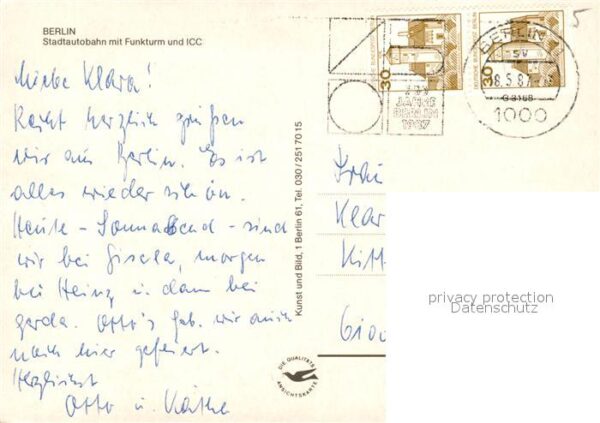 BERLIN
Stadtautobahn mit Funkturm und ICC
Liebe Klara!
Recht herzlich grüßen
wir aus Berlin. Es ist
alles wieder schön.
Heute - Sonnabend - sind
wir bei Gisela, morgen
bei Heinz u. dann bei
Gerda. Otto's Geb. wir auch
noch hier gefeiert.
Herzlichst
Otto u. Käthe
Kunst und Bild, 1 Berlin 61, Tel. 030/2517015
DIE QUALITÄTS
ANSICHTSKARTE
30
30
750
JAHRE
BERLIN
1987
BERLIN
1000
5
Frau
Klar
Kitt
privacy protection
Datenschutz